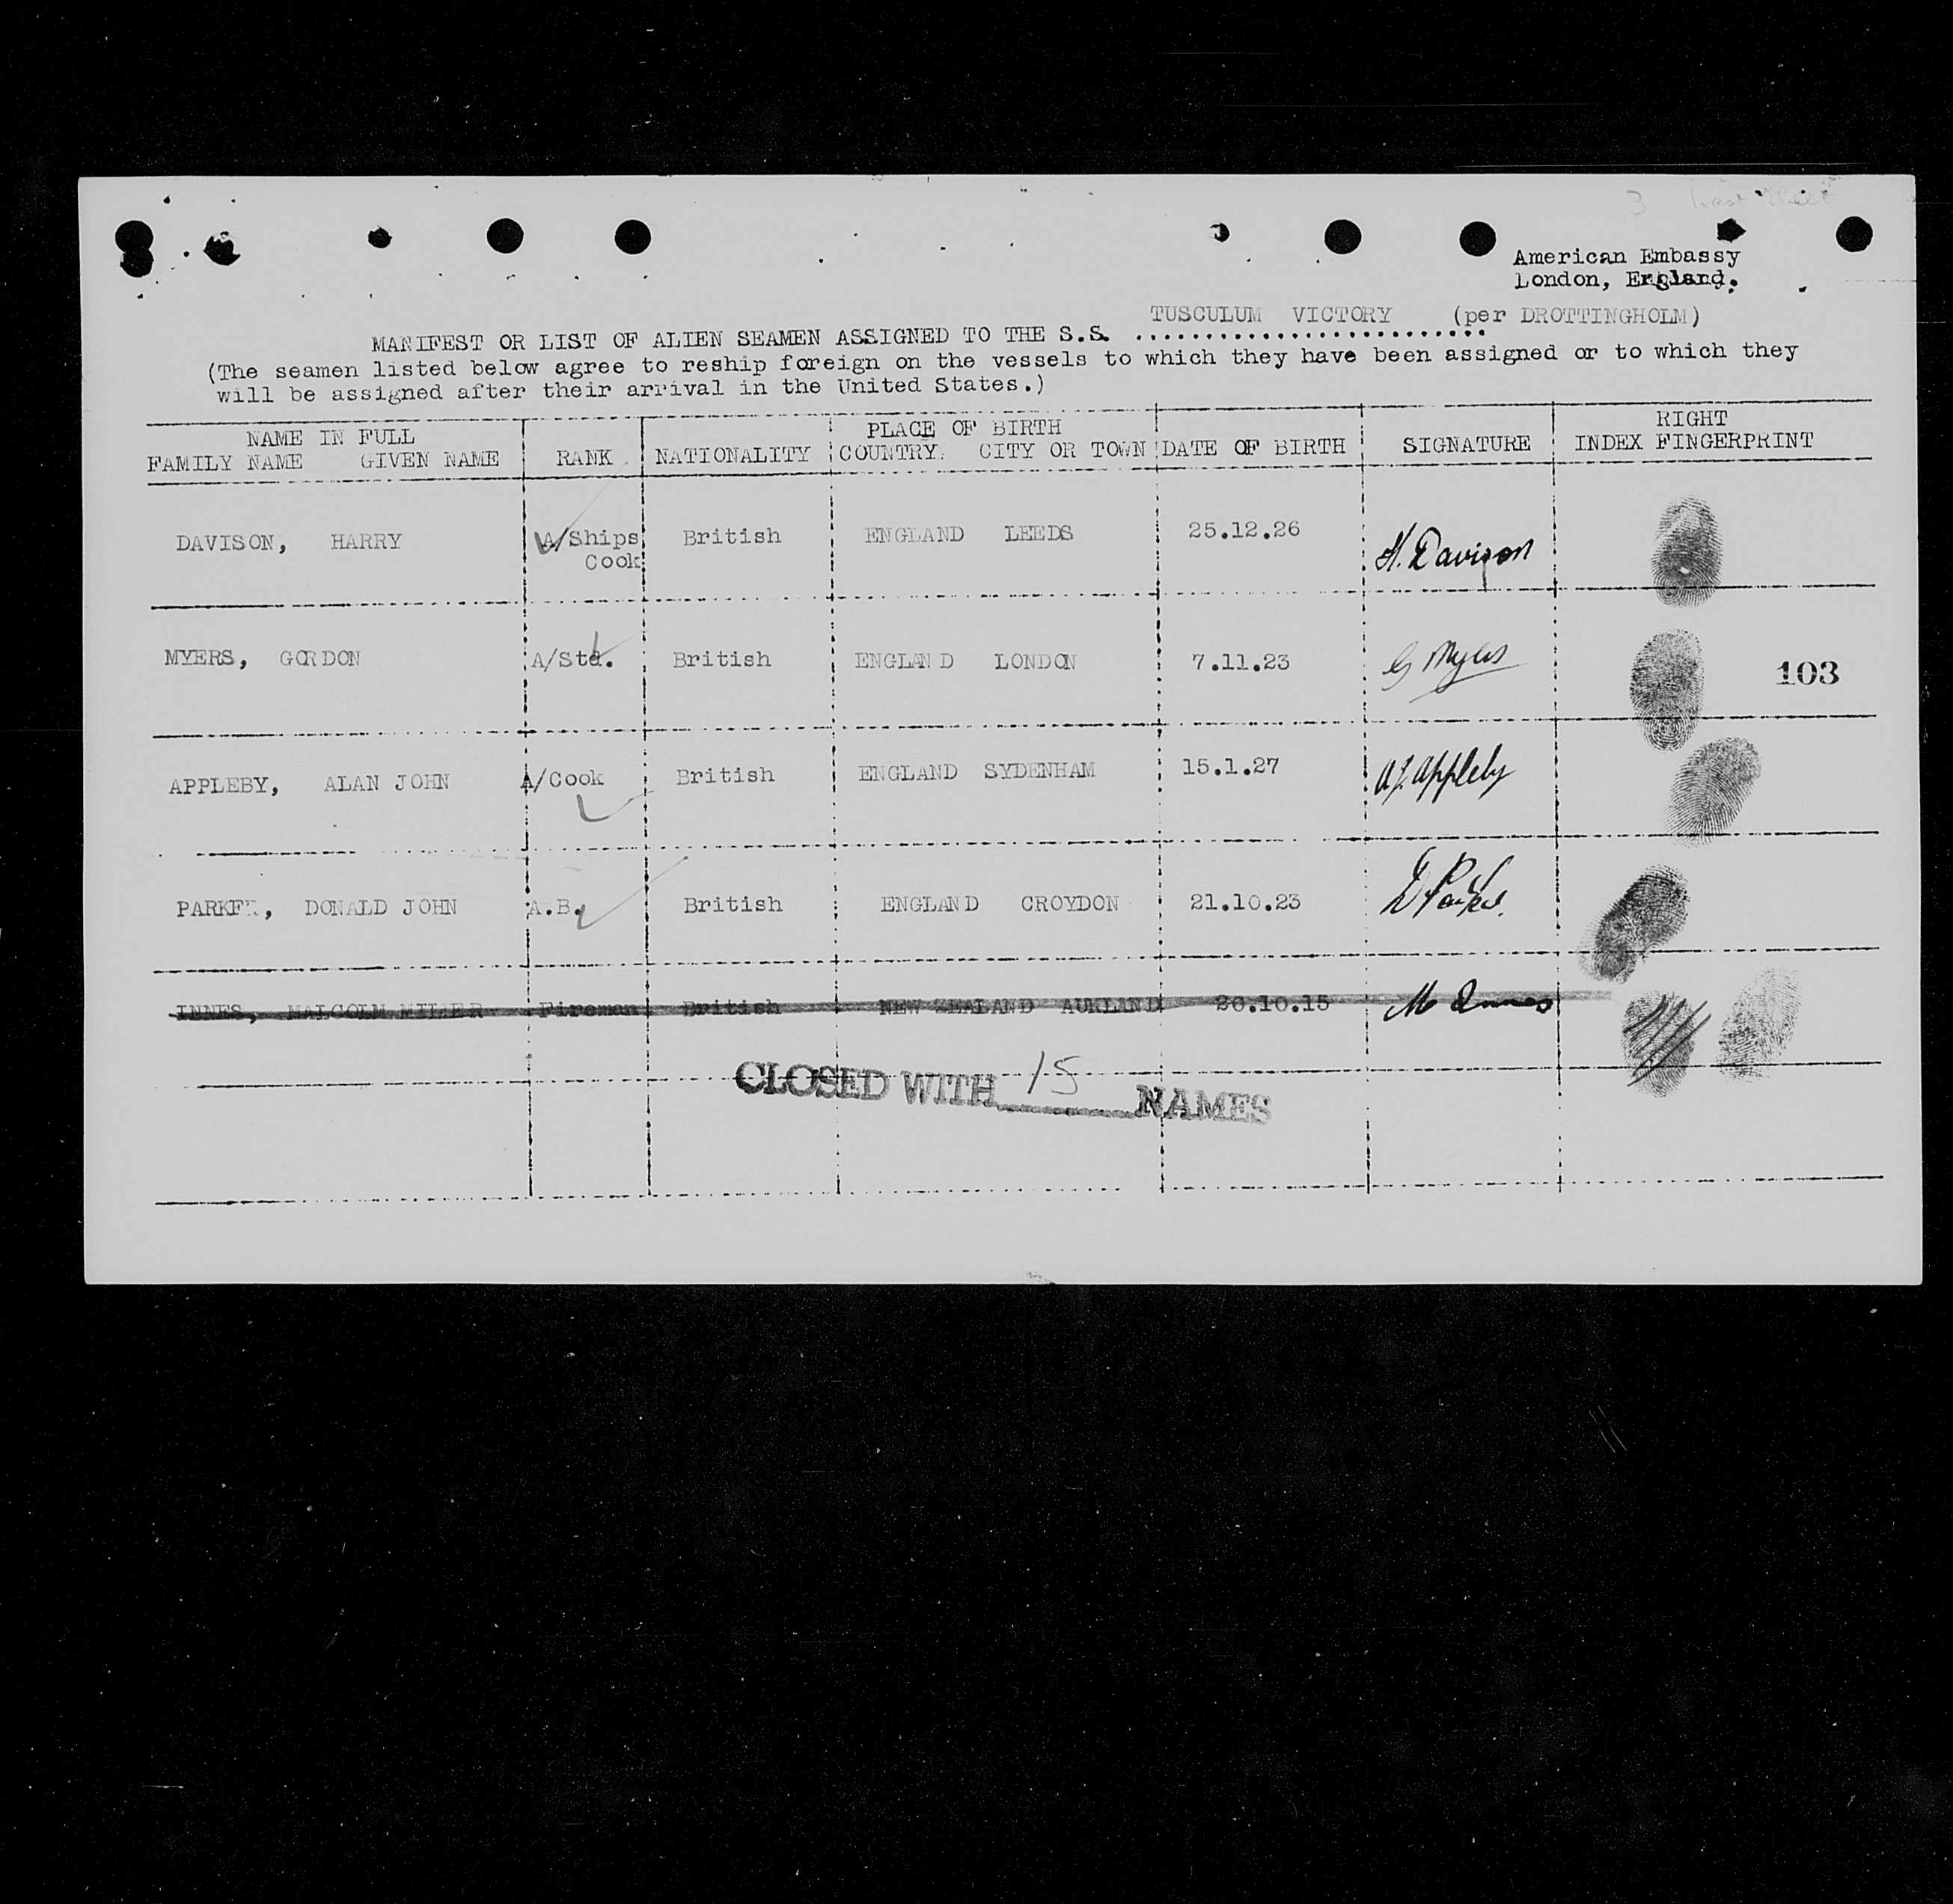 3
American Embassy
London, England.
TUSCULUM VICTORY (per DROTTINGHOLM)
MANIFEST OR LIST OF ALIEN SEAMEN ASSIGNED TO THE S.S. ..........................
(The seamen listed below agree to reship foreign on the vessels to which they have been assigned or to which they
will be assigned after their arrival in the United States.)
NAME IN FULL PLACE OF BIRTH RIGHT
FAMILY NAME GIVEN NAME RANK NATIONALITY COUNTRY. CITY OR TOWN DATE OF BIRTH SIGNATURE INDEX FINGERPRINT
DAVISON, HARRY A/Ships British ENGLAND LEEDS 25.12.26 H. Davison
Cook
MYERS, GORDON A/Std. British ENGLAND LONDON 7.11.23 G Myers 103
APPLEBY, ALAN JOHN A/Cook British ENGLAND SYDENHAM 15.1.27 A J. Appleby
PARKER, DONALD JOHN A.B. British ENGLAND CROYDON 21.10.23 D Parker.
INNES, MALCOLM MILLER Fireman British NEW ZEALAND AUKLAND 20.10.15 M Innes
CLOSED WITH 15 NAMES